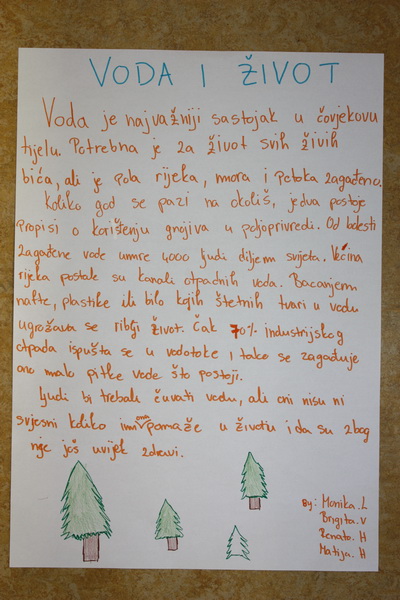 VODA I ŽIVOT
Voda je najvažniji sastojak u čovjekovu
tijelu. Potrebna je za život svih živih
bića, ali je pola rijeka, mora i potoka zagađeno.
Koliko god se pazi na okoliš, jedva postoje
propisi o korištenju gnojiva u poljoprivredi. Od bolesti
zagađene vode umre 4000 ljudi diljem svijeta. Većina
rijeka postale su kanali otpadnih voda. Bacanjem
nafte, plastike ili bilo kojih štetnih tvari u vodu
ugrožava se riblji život. Čak 70% industrijskog
otpada ispušta se u vodotoke i tako se zagađuje
ono malo pitke vode što postoji.
Ljudi bi trebali čuvati vodu, ali oni nisu ni
svjesni koliko im ona pomaže u životu i da su zbog
nje još uvijek zdravi.
By: Monika.L
Brigita.V
Renato.H
Matija.H